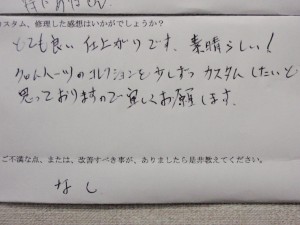 特にありません。
カスタム、修理した感想はいかがでしょうか?
とても良い仕上がりです。素晴らしい!
クロムハーツのコレクションを少しずつカスタムしたいと
思っておりますので宜しくお願します。
ご不満な点、または、改善すべき事が、ありましたら是非教えてください。
なし